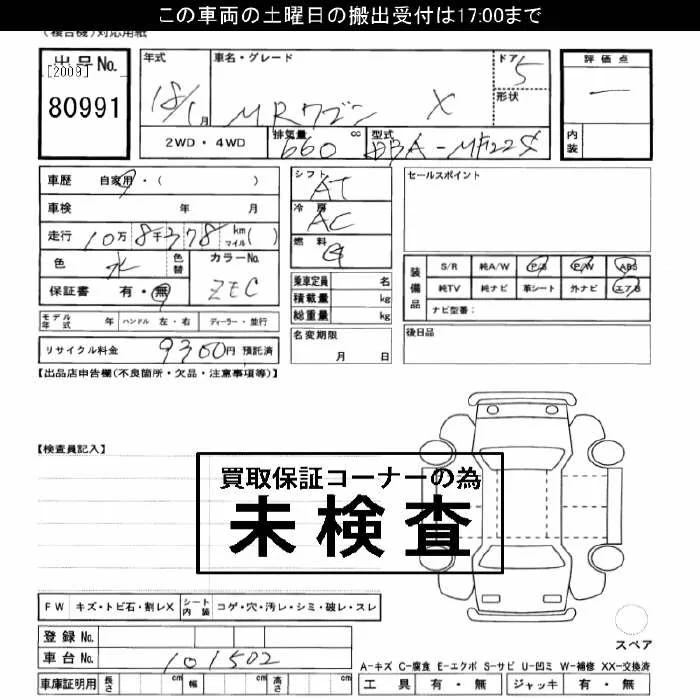 この車両の土曜日の搬出受付は17:00まで
(複合機)対応用紙
出品No.
[2009]
80991
年式
18/1月
車名・グレード
MRワゴン X
ドア
5
形状
評価点
―
内装
2WD・4WD
排気量 660 cc
型式 DBA-MF22S
車歴 自家用・( )
車検 年 月
走行 10万8千378 km マイル( )
色 水 色替
カラーNo. ZEC
保証書 有・無
モデル年式 年 ハンドル 左・右 ディーラー・並行
リサイクル料金 9300円 預託済
シフト AT
冷房 AC
燃料 G
乗車定員 名
積載量 kg
総重量 kg
名変期限
月 日
セールスポイント
装備品
S/R 純A/W P/S P/W ABS
純TV 純ナビ 革シート 外ナビ エアB
ナビ型番:
後日品
【出品店申告欄(不良箇所・欠品・注意事項等)】
【検査員記入】
買取保証コーナーの為
未検査
FW キズ・トビ石・割レX シート内装 コゲ・穴・汚レ・シミ・破レ・スレ
登録No.
車台No. 101502
車庫証明用 長さ cm 幅 cm 高さ cm
スペア
A-キズ C-腐食 E-エクボ S-サビ U-凹ミ W-補修 XX-交換済
工具 有・無 ジャッキ 有・無